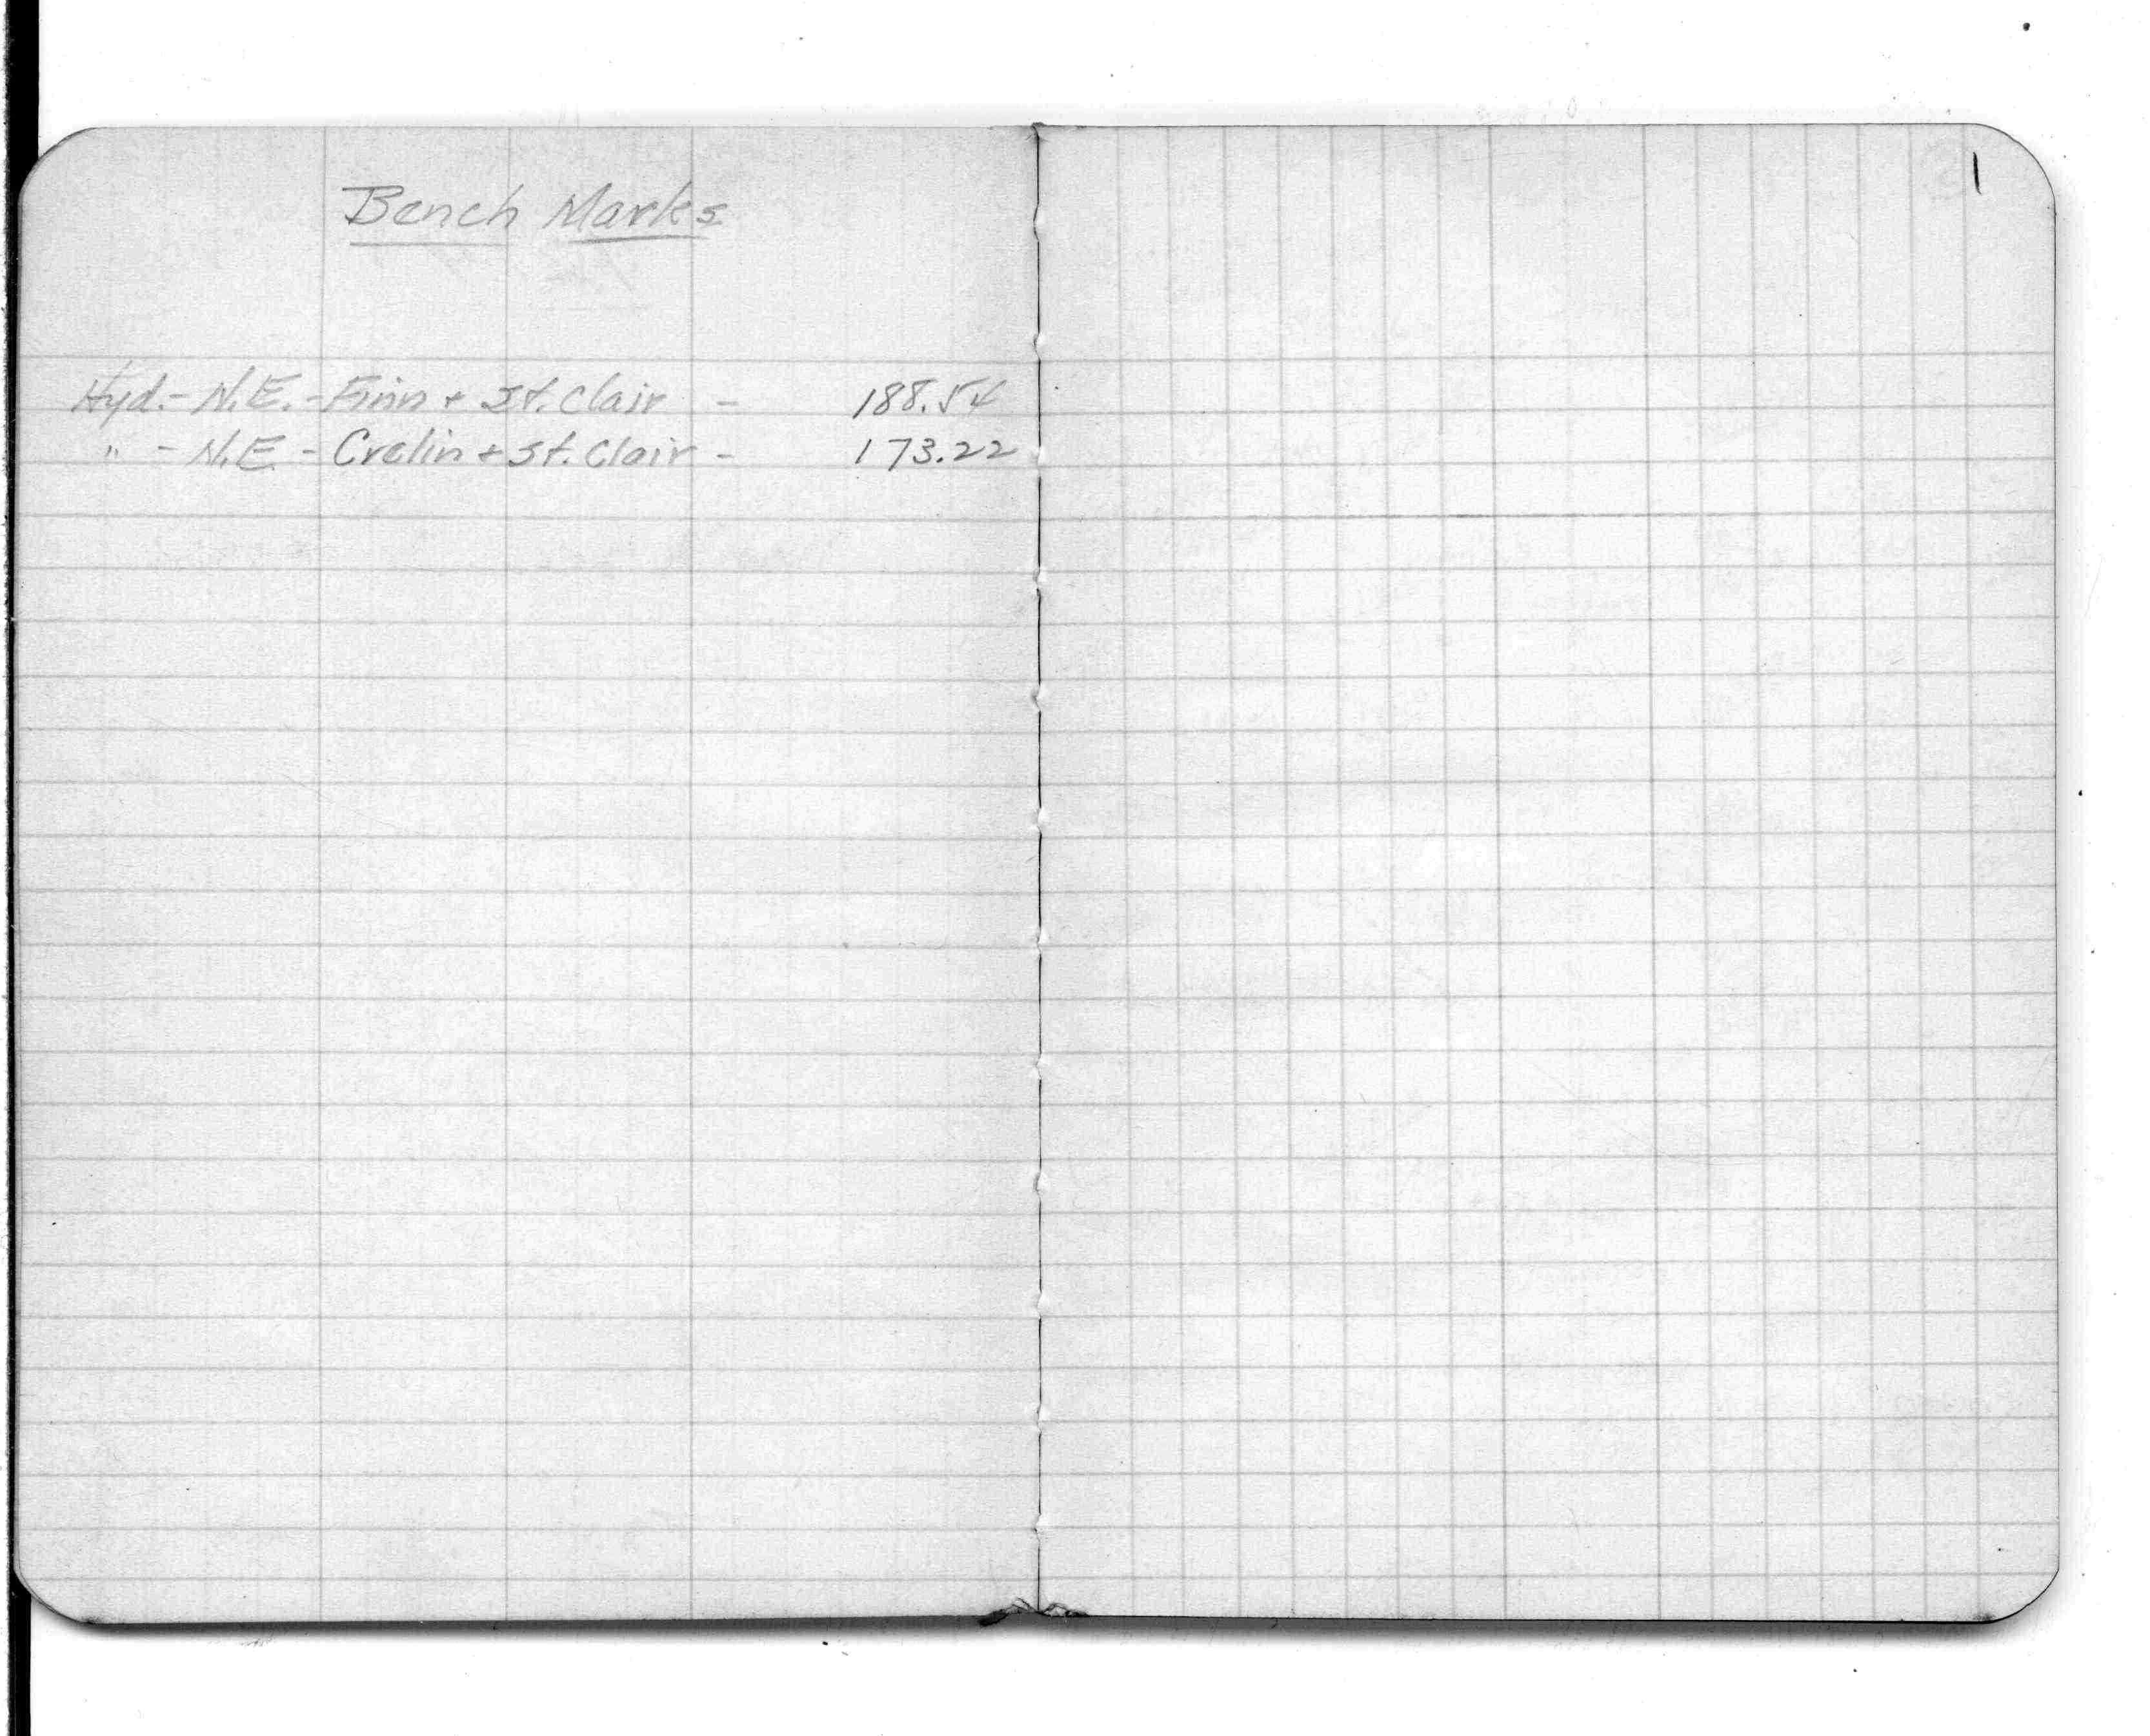 Bench Marks
1
Hyd. - N.E. - Finn + St. Clair - 188.54
" - N.E. - Cretin + St. Clair - 173.22